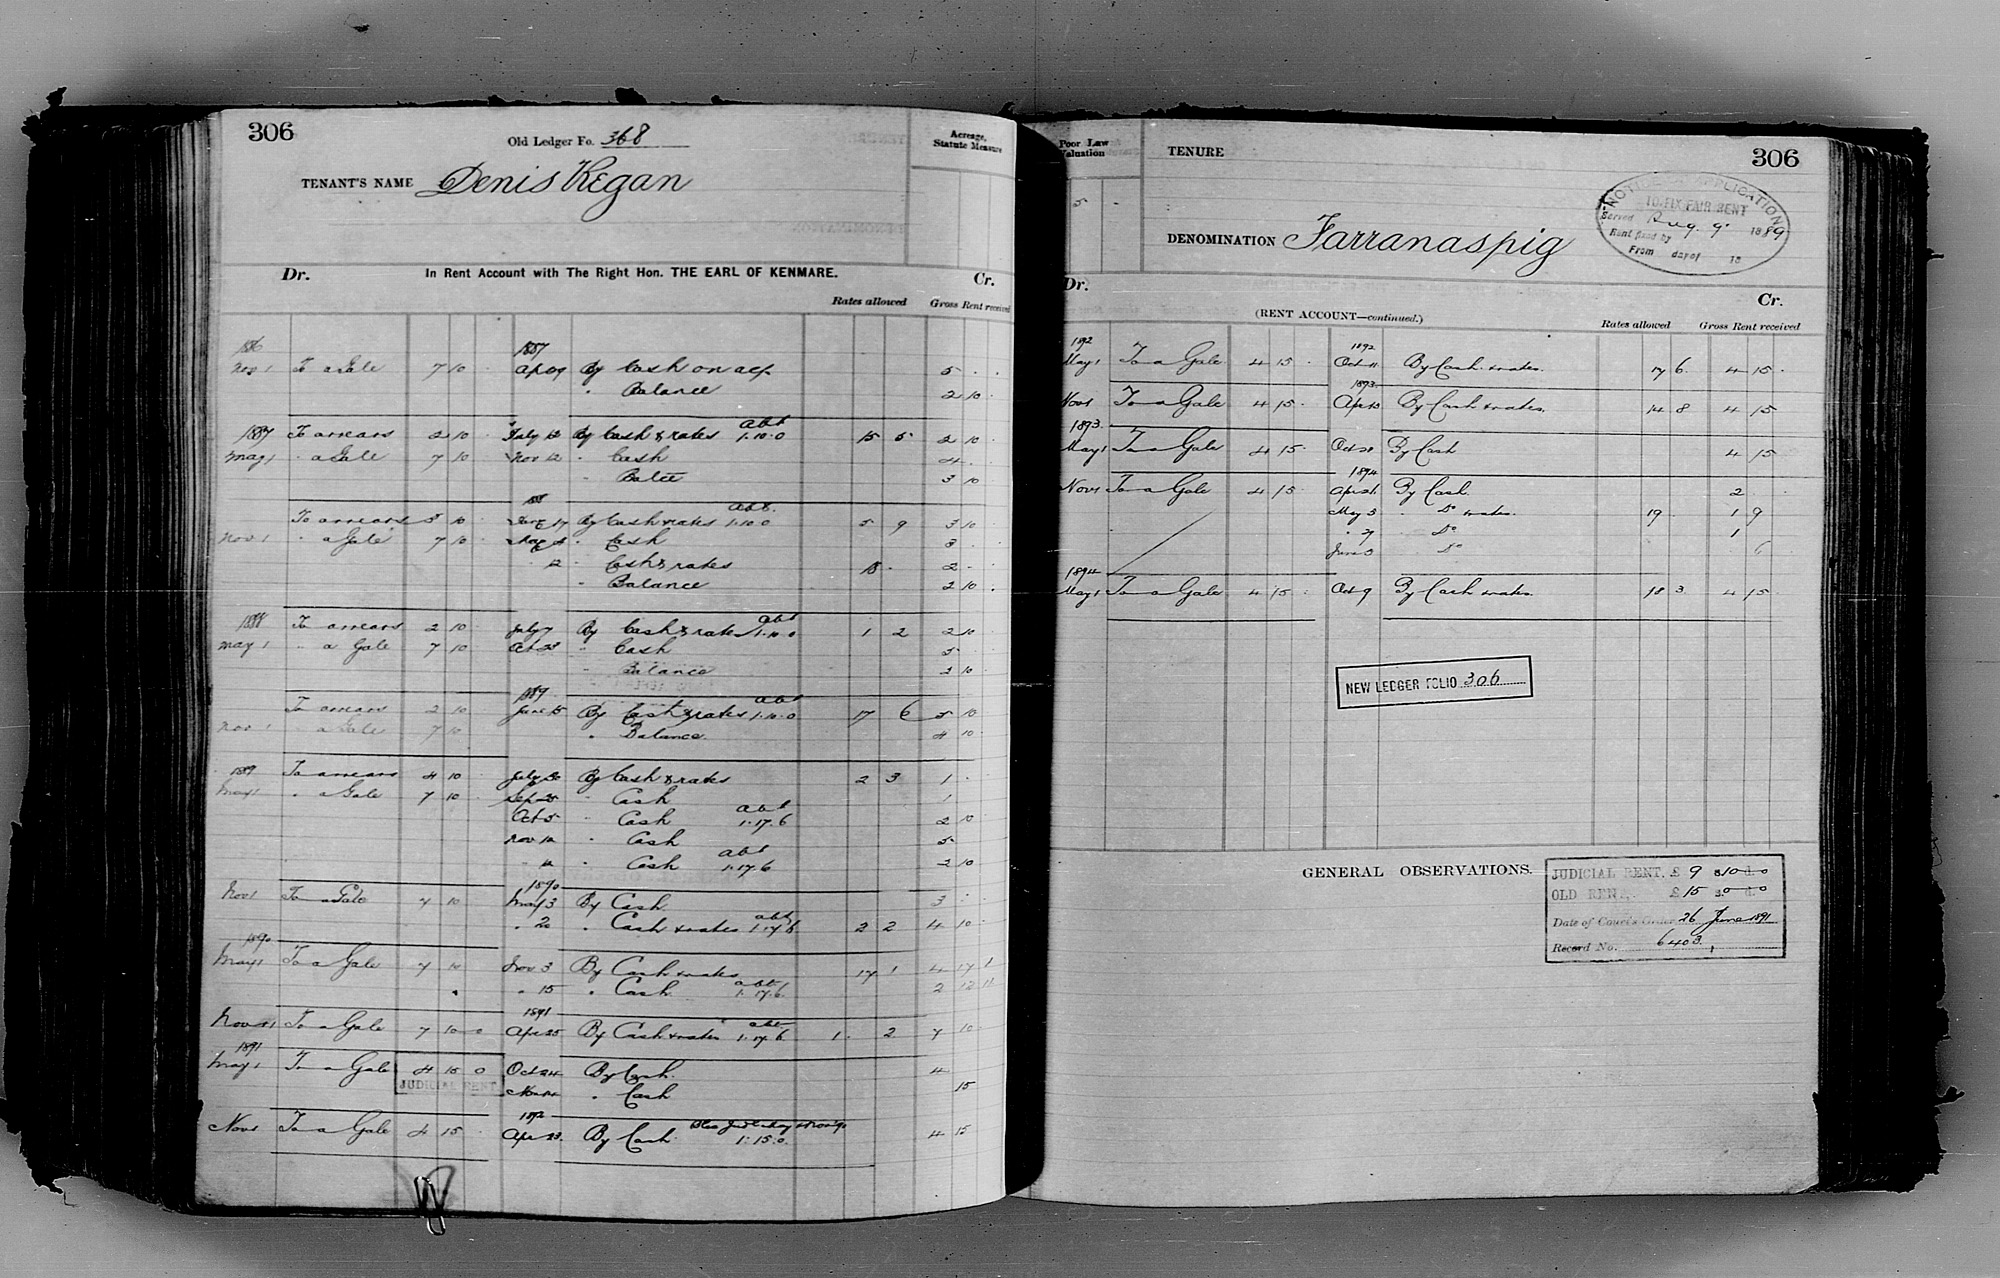 306
Old Ledger Fo. 368
Acreage, Statute Measure
TENANT'S NAME Denis Kegan
Dr. In Rent Account with The Right Hon. THE EARL OF KENMARE. Cr.
Rates allowed Gross Rent received
1886 1887
Nov 1 To a Gale 7 10 By Cash on acp 5
" Balance 2 10
1887 To arrears 2 10 July 12 By Cash & rates abt 1.10.0 15 5 2 10
May 1 " a Gale 7 10 Nov 12 " Cash 4
3 10
To arrears 3 10 By Cash & rates 1.10.0 5 9 3 10
Nov 1 " a Gale 7 10 " Cash 3
12 " Cash & rates 2
" Balance 2 10
1888 To arrears 2 10 July 7 By Cash & rates abt 1.10.0 1 2 2 10
May 1 " a Gale 7 10 Oct 23 " Cash 5
" Balance 2 10
1889
To arrears 2 10 June 15 By Cash & rates abt 1.10.0 17 6 5 10
Nov 1 " a Gale 7 10 " Balance 4 10
1889 To arrears 4 10 By Cash & rates 2 3 1
May 1 " a Gale 7 10 Sep 25 " Cash 1
Oct 5 " Cash abt 1.17.6 2 10
Nov 12 " Cash 5
" Cash abt 1.17.6 2 10
1890
Nov 1 To a Gale 7 10 May 3 By Cash 3
" 20 " Cash & rates abt 1.17.6 2 2 4 10
1890
May 1 To a Gale 7 10 Nov 3 By Cash & rates 17 1 4 17 1
" 15 " Cash abt 1.17.6 2 12 11
1891
Nov 1 To a Gale 7 10 0 Apr 25 By Cash & rates abt 1.17.6 1 2 7 10
1891
May 1 To a Gale 4 15 0 Oct 24 By Cash 4
JUDICIAL RENT " Cash 15
1892
Nov 1 To a Gale 4 15 Apr 23 By Cash 1.15.0 4 15
Poor Law Valuation
TENURE
306
5
NOTICE OF APPLICATION
TO FIX FAIR RENT
Served Aug. 9 1889
Rent fixed by
From day of 18
DENOMINATION Farranaspig
Dr. Cr.
(RENT ACCOUNT—continued.)
Rates allowed Gross Rent received
1892 1892
May 1 To a Gale 4 15 Oct 11 By Cash & rates 17 6 4 15
1893
Nov 1 To a Gale 4 15 Apr 13 By Cash & rates 14 8 4 15
1893
May 1 To a Gale 4 15 Oct 28 By Cash 4 15
1894
Nov 1 To a Gale 4 15 Apr 21 By Cash 2
May 3 " Do & rates 19 1 9
" 27 Do 1
June 3 Do 6
1894
May 1 To a Gale 4 15 Oct 9 By Cash & rates 18 3 4 15
NEW LEDGER FOLIO 306
GENERAL OBSERVATIONS.
JUDICIAL RENT. £ 9 s 10 d 0
OLD RENT, £ 15 s 0 d 0
Date of Court's Order 26 June 1891
Record No. 6403